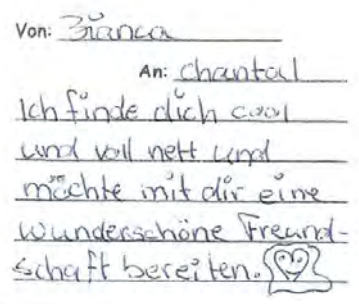 Von: Bianca
An: Chantal
Ich finde dich cool
und voll nett und
möchte mit dir eine
wunderschöne Freund-
schaft bereiten.